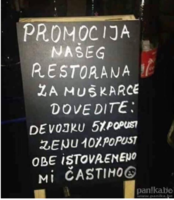 PROMOCIJA
NAŠEG
RESTORANA
ZA MUŠKARCE
DOVEDITE:
DEVOJKU 5% POPUST
ŽENU 10% POPUST
OBE ISTOVREMENO
MI ČASTIMO
panika.be